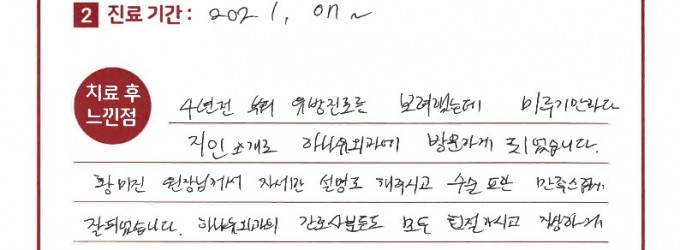 2 진료 기간 : 2021, 07 ~
치료 후
느낀점
4년전 부터 유방진료를 보려했는데 미루기만하다
지인 소개로 하나유외과에 방문하게 되었습니다.
황미진 원장님께서 자세한 설명도 해주시고 수술 또한 만족스럽게
잘되었습니다. 하나유외과의 간호사분들도 모두 친절하시고